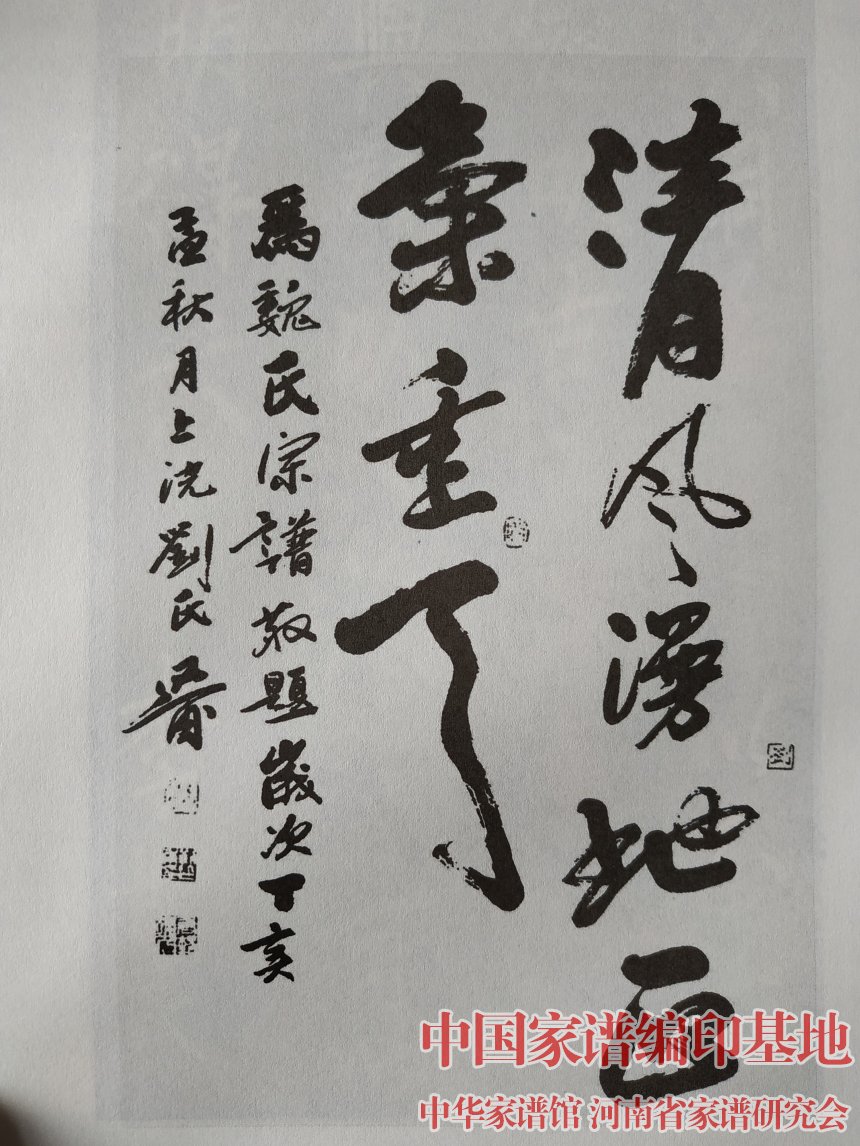 清风漫地
重了
爲魏氏宗譜敬題歲次丁亥
孟秋月上浣劉氏
中国家谱编印基地
中华家谱馆 河南省家谱研究会